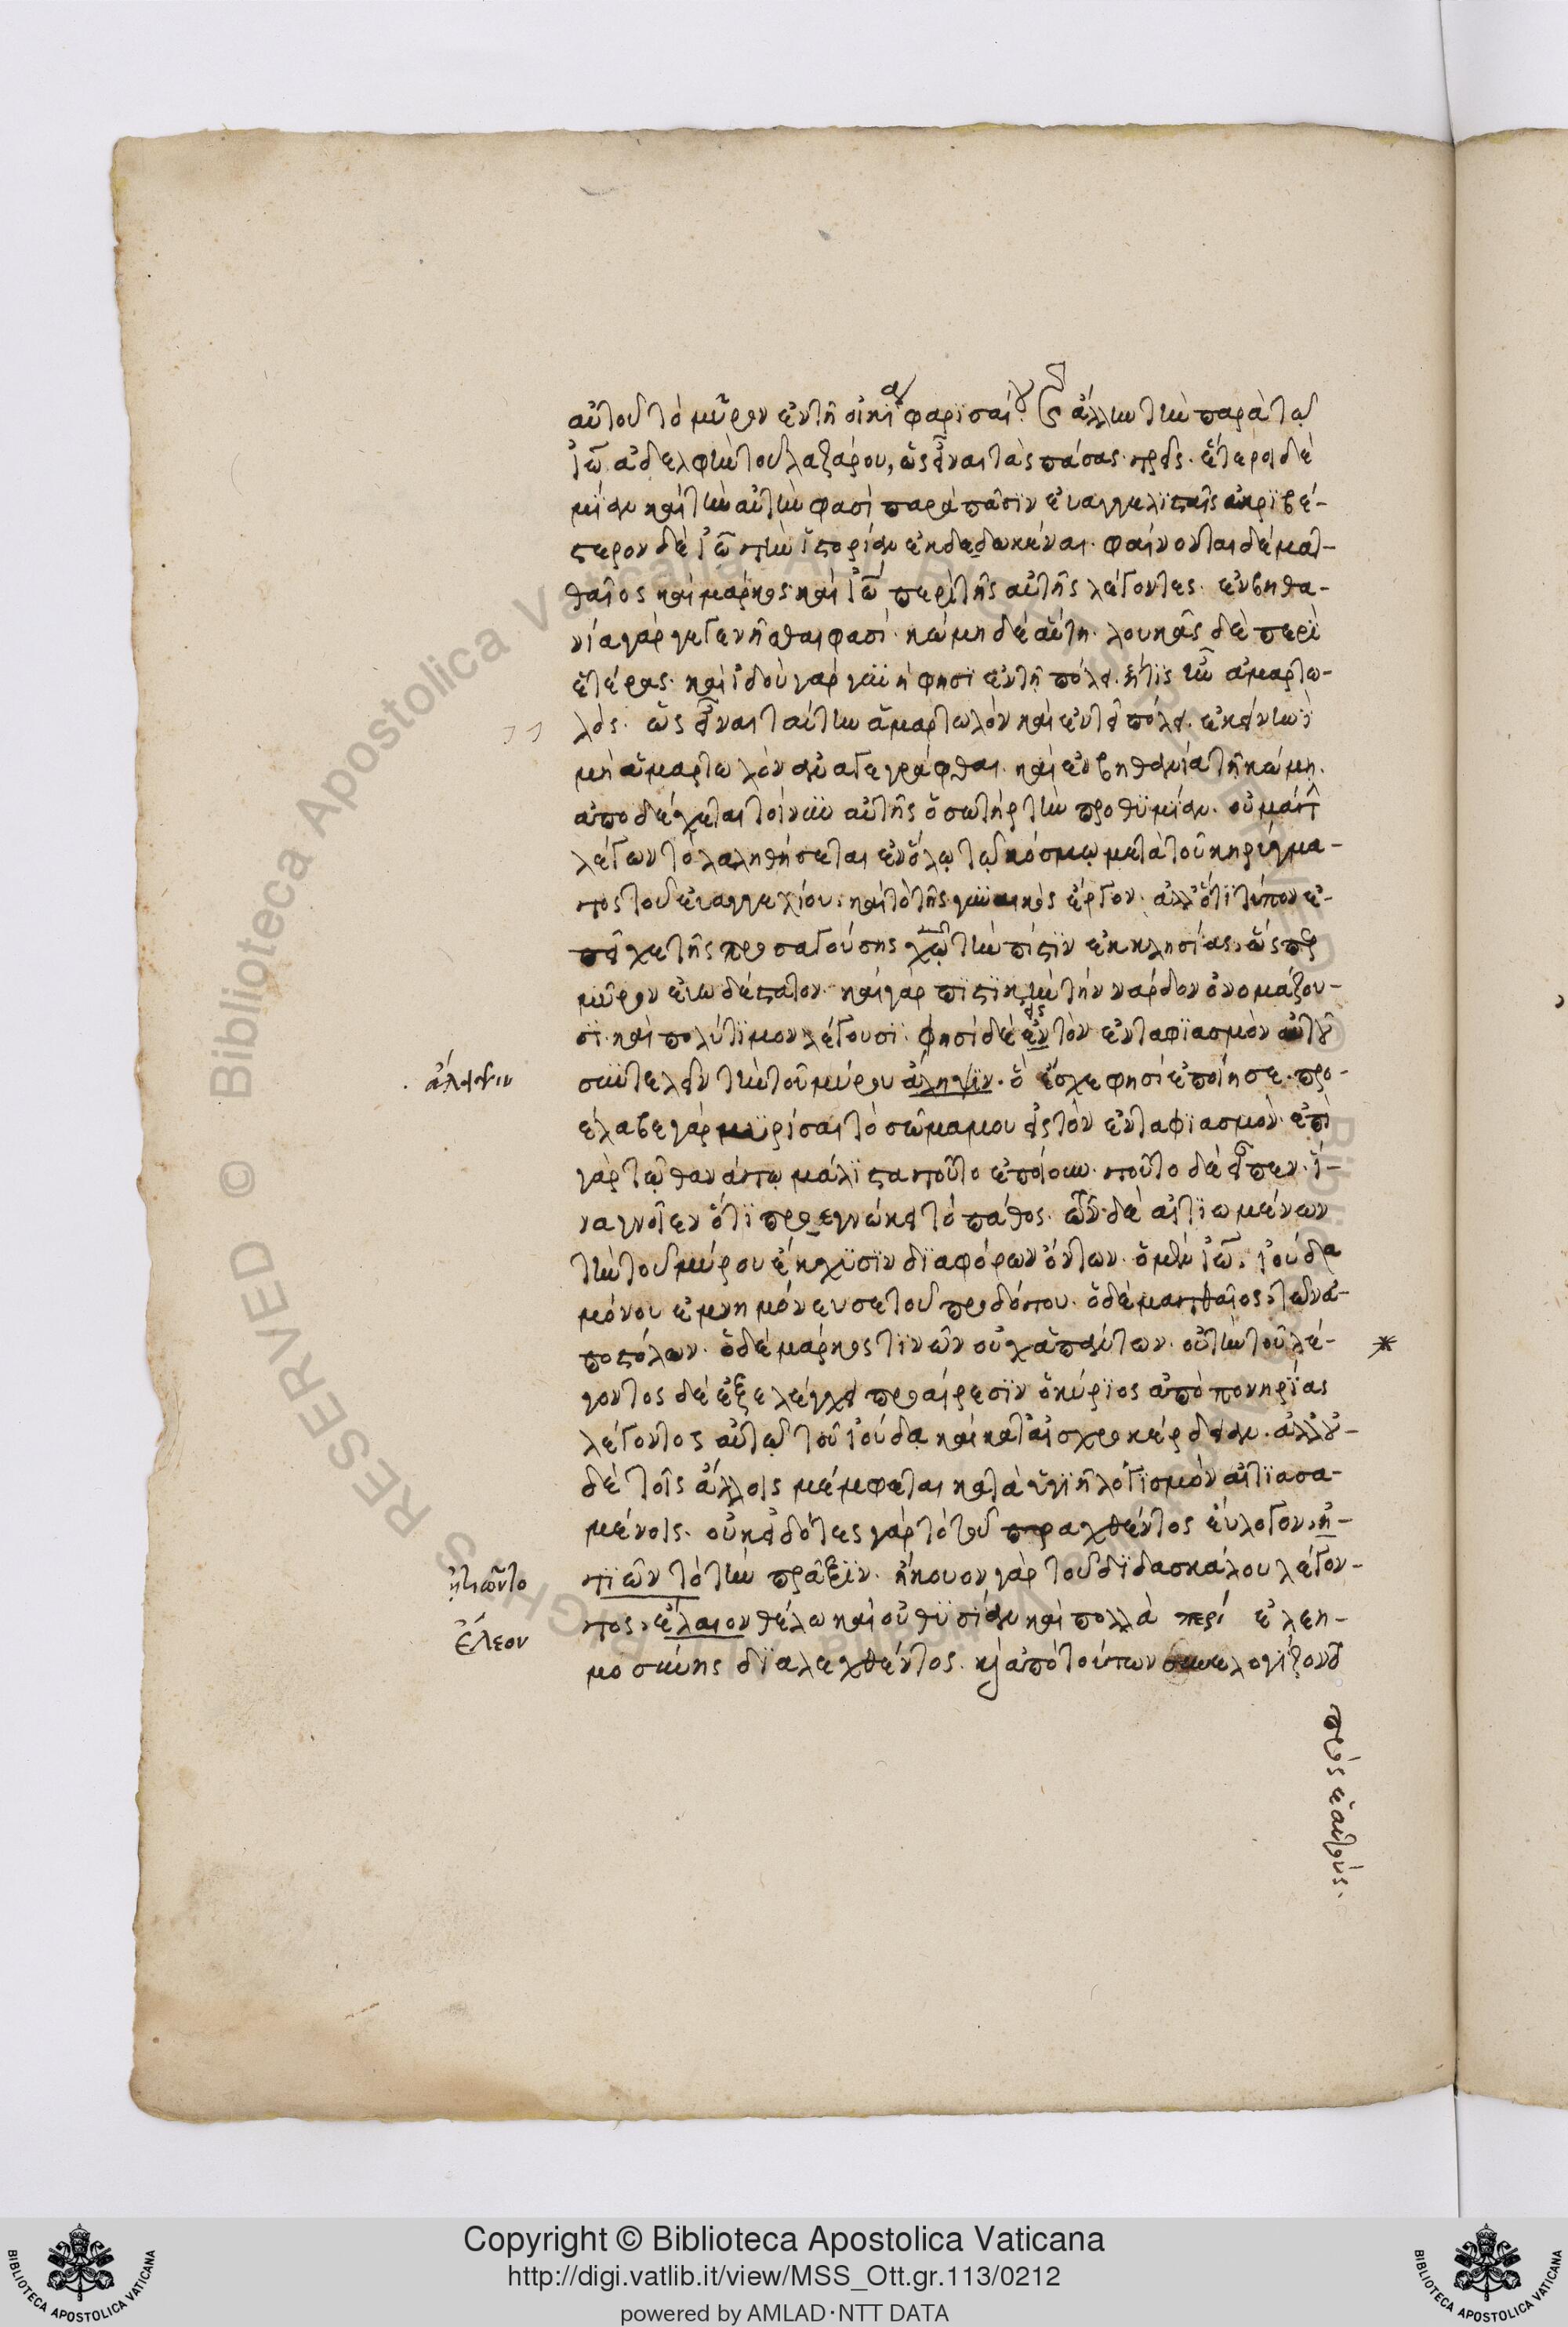 αὐτοῦ τὸ μῦρον ἐν τῇ οἰκίᾳ φαρισαίου καὶ ἄλλην τὴν παρὰ τῷ
ἰω ἀδελφὴν τοῦ λαζάρου, ὡς εἶναι τὰς πάσας τρεῖς. ἕτεροι δὲ
μίαν καὶ τὴν αὐτὴν φασὶ παρὰ πᾶσιν εὐαγγελισταῖς ἀκριβέ-
στερον δὲ ἰω τὴν ἱστορίαν ἐκδεδωκέναι. φαίνονται δὲ ματ-
θαῖος καὶ μάρκος καὶ ἰω περὶ τῆς αὐτῆς λέγοντες. ἐν βηθα-
νία γὰρ γεγενῆσθαι φασί. κώμη δὲ αὕτη. λουκᾶς δὲ περὶ
ἑτέρας. καὶ ἰδοὺ γὰρ γυνή φησι ἐν τῇ πόλει ἥτις ἦν ἁμαρτω-
λός. ὡς εἶναι ταύτην ἁμαρτωλὸν καὶ ἐν τῇ πόλει. ἐκείνην
μὴ ἁμαρτωλὸν ἀναγεγράφθαι καὶ ἐν βηθανία τῇ κώμῃ.
ἀποδέχεται τοίνυν αὐτῆς ὁ σωτὴρ τὴν προθυμίαν. οὐ μάτ
λέγων τὸ λαληθήσεται ἐν ὅλῳ τῷ κόσμῳ μετὰ τοῦ κηρύγμα-
τος τοῦ εὐαγγελίου καὶ τὸ τῆς γυναικὸς ἔργον. ἀλλ' ὅτι τύπον ἐ-
πεῖχε τῆς προσαγούσης χῶ τὴν πίστιν ἐκκλησίας, ὥσπερ
μῦρον εὐωδέστατον. καὶ γὰρ πιστικὴν τὴν νάρδον ὀνομάζου-
σι. καὶ πολύτιμον λέγουσι. φησὶ δὲ ἐν εἰς τὸν ἐνταφιασμὸν αὐτοῦ
συντελεῖν τὴν τοῦ μύρου ἄληψιν. ὃ ἔσχε φησὶ ἐποίησε. προ-
έλαβε γὰρ μυρίσαι τὸ σῶμα μου εἰς τὸν ἐνταφιασμόν. ἐπὶ
γὰρ τῷ θανάτῳ μάλιστα τοῦτο ἐποίουν. τοῦτο δὲ εἶπεν. ἵ-
να γνοῖεν ὅτι προεγνώκει τὸ πάθος. τῶν δὲ αἰτιωμένων
τὴν τοῦ μύρου ἔκχυσιν διαφόρων ὄντων. ὁ μὲν ἰω. ἰούδα
μόνου ἐμνημόνευσε τοῦ προδότου. ὁ δὲ ματθαῖος, τῶν ἀ-
ποστόλων. ὁ δὲ μάρκος τινῶν οὐχ ἁπάντων. οὐ τὴν τοῦ λέ-
γοντος δὲ ἐξελέγχει προαίρεσιν ὁ κύριος ἀπὸ πονηρίας
λέγοντος αὐτῷ τοῦ ἰούδα καὶ κατ' αἰσχροκέρδειαν. ἀλλ' οὐ-
δὲ τοῖς ἄλλοις μέμφεται κατὰ λογισμὸν αἰτιασα-
μένοις. οὐκ εἰδότες γὰρ τὸ τοῦ πραχθέντος εὔλογον, ἠ-
τιῶν τὸ τὴν πρᾶξιν. ἤκουον γὰρ τοῦ διδασκάλου λέγον-
τος, ἔλαιον θέλω καὶ οὐ θυσίαν καὶ πολλὰ περὶ ἐλεη-
μοσύνης διαλεχθέντος. κἀ ἀπὸ τούτων συνελογίζοντ
πρὸς ἑαυτούς.
ἄλειψιν
ᾐτιῶντο
ἔλεον
Copyright © Biblioteca Apostolica Vaticana
http://digi.vatlib.it/view/MSS_Ott.gr.113/0212
powered by AMLAD·NTT DATA